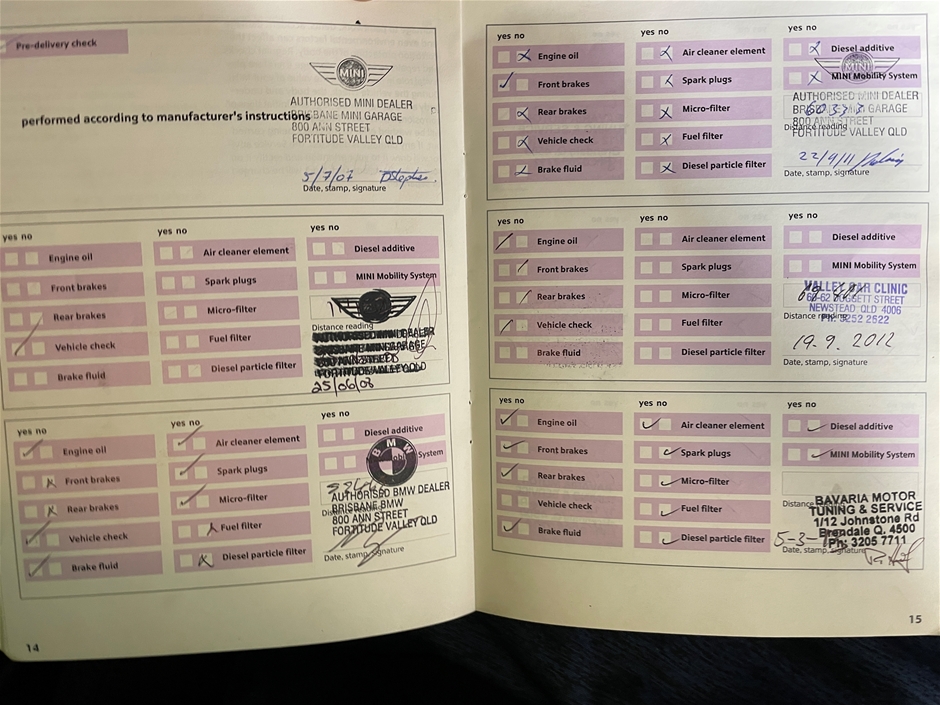 Pre-delivery check
MINI
AUTHORISED MINI DEALER
BRISBANE MINI GARAGE
performed according to manufacturer's instructions
800 ANN STREET
FORTITUDE VALLEY QLD
5/7/07
Date, stamp, signature
yes no
yes no
yes no
Engine oil
Air cleaner element
Diesel additive
Front brakes
Spark plugs
MINI Mobility System
Rear brakes
Micro-filter
Distance reading
Vehicle check
Fuel filter
AUTHORISED MINI DEALER
BRISBANE MINI GARAGE
800 ANN STREET
FORTITUDE VALLEY QLD
Brake fluid
Diesel particle filter
25/06/08
yes no
yes no
yes no
Engine oil
Air cleaner element
Diesel additive
Front brakes
Spark plugs
BMW
System
Rear brakes
Micro-filter
AUTHORISED BMW DEALER
BRISBANE BMW
800 ANN STREET
FORTITUDE VALLEY QLD
Vehicle check
Fuel filter
Brake fluid
Diesel particle filter
Date, stamp, signature
14
yes no
yes no
yes no
Engine oil
Air cleaner element
Diesel additive
Front brakes
Spark plugs
MINI Mobility System
MINI
Rear brakes
Micro-filter
AUTHORISED MINI DEALER
BRISBANE MINI GARAGE
800 ANN STREET
FORTITUDE VALLEY QLD
Distance reading
Vehicle check
Fuel filter
22/9/11
Brake fluid
Diesel particle filter
Date, stamp, signature
yes no
yes no
yes no
Engine oil
Air cleaner element
Diesel additive
Front brakes
Spark plugs
MINI Mobility System
Rear brakes
Micro-filter
VALLEY CAR CLINIC
60-62 DOGGETT STREET
NEWSTEAD QLD 4006
PH: 3252 2522
Distance reading
Vehicle check
Fuel filter
19.9.2012
Brake fluid
Diesel particle filter
Date, stamp, signature
yes no
yes no
yes no
Engine oil
Air cleaner element
Diesel additive
Front brakes
Spark plugs
MINI Mobility System
Rear brakes
Micro-filter
Distance
BAVARIA MOTOR
TUNING & SERVICE
1/12 Johnstone Rd
Brendale Q. 4500
Ph: 3205 7711
Vehicle check
Fuel filter
Brake fluid
Diesel particle filter
Date, stamp, signature
15